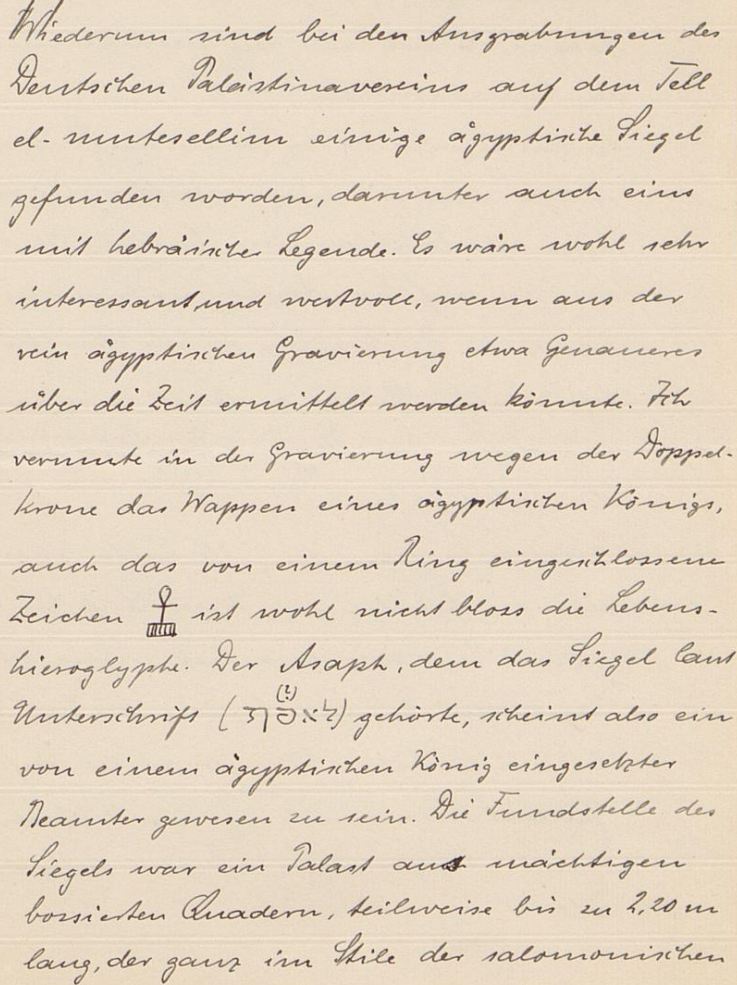 Wiederum sind bei den Ausgrabungen des
Deutschen Palästinavereins auf dem Tell
el-mutesellim einige ägyptische Siegel
gefunden worden, darunter auch eins
mit hebräischer Legende. Es wäre wohl sehr
interessant und wertvoll, wenn aus der
rein ägyptischen Gravierung etwa Genaueres
über die Zeit ermittelt werden könnte. Ich
vermute in der Gravierung wegen der Doppel-
krone das Wappen eines ägyptischen Königs,
auch das von einem Ring eingeschlossene
Zeichen ist wohl nicht bloss die Lebens-
hieroglyphe. Der Asaph, dem das Siegel laut
Unterschrift ( ) gehörte, scheint also ein
von einem ägyptischen König eingesetzter
Beamter gewesen zu sein. Die Fundstelle des
Siegels war ein Palast aus mächtigen
bossierten Quadern, teilweise bis zu 2,20 m
lang, der ganz im Stile der salomonischen